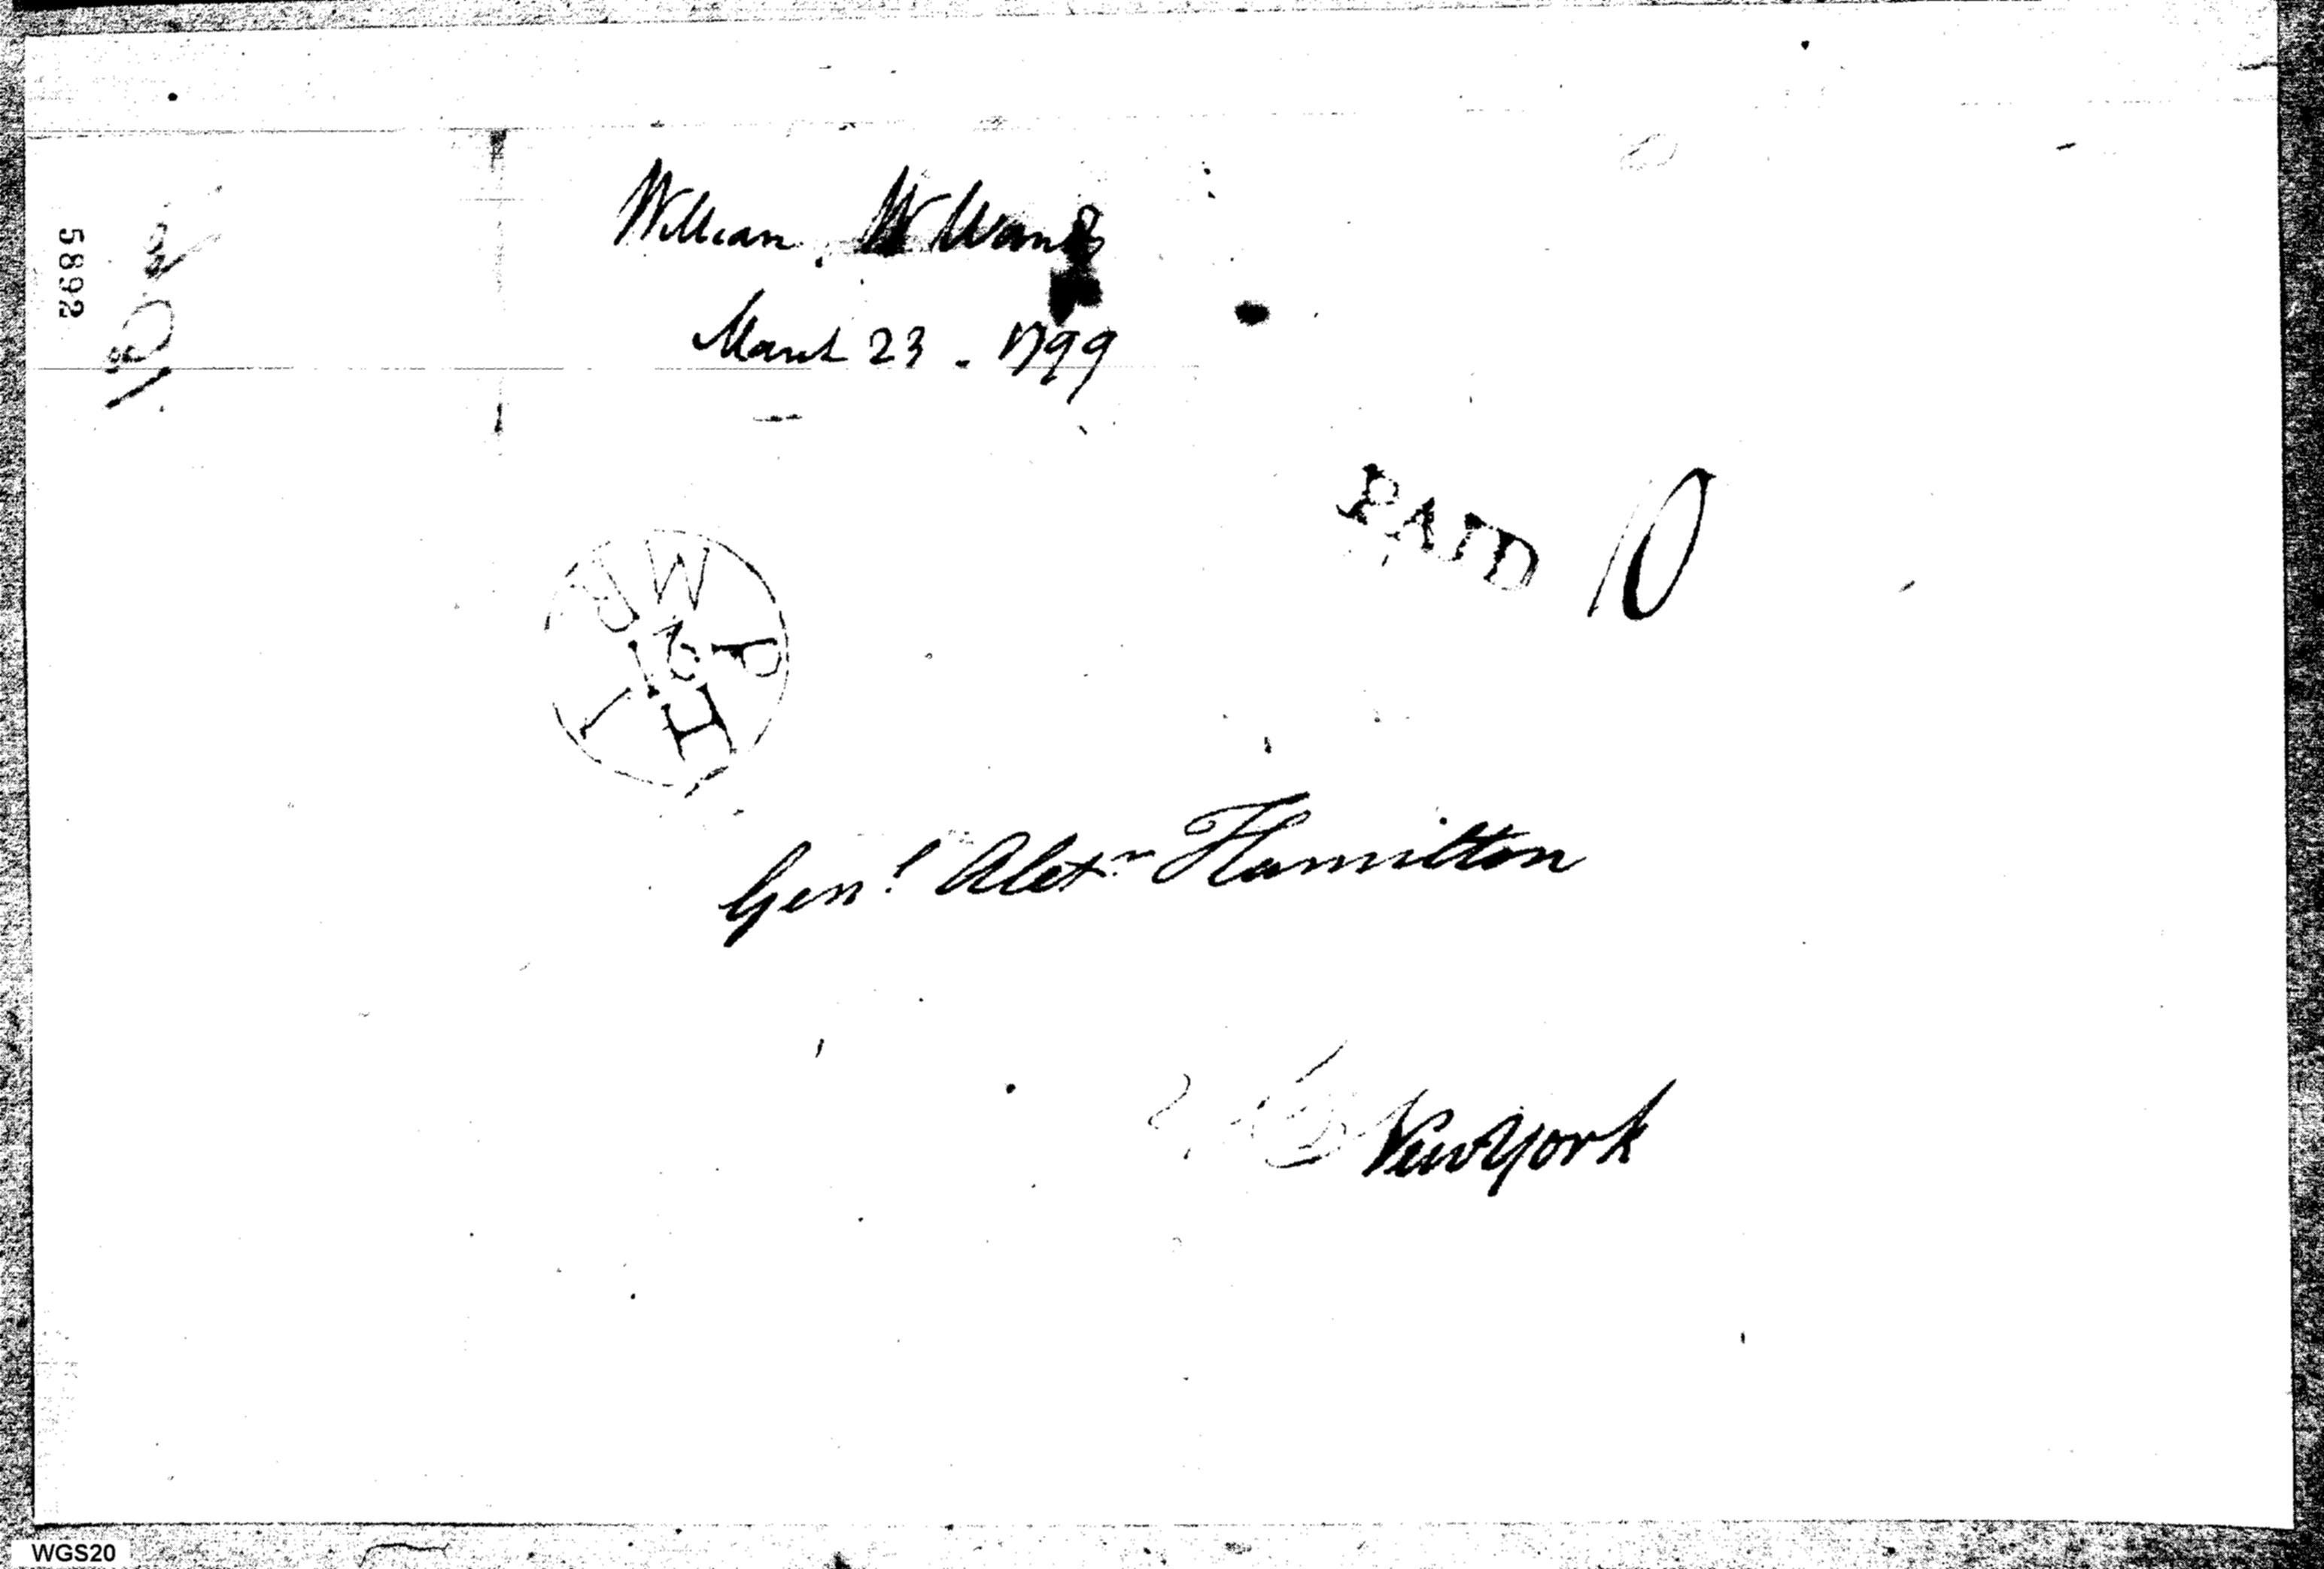 5892
William Willcocks
March 23 - 1799
PAID 10
MR
23
PHI
Gen.l Alex.r Hamilton
New York
WGS20